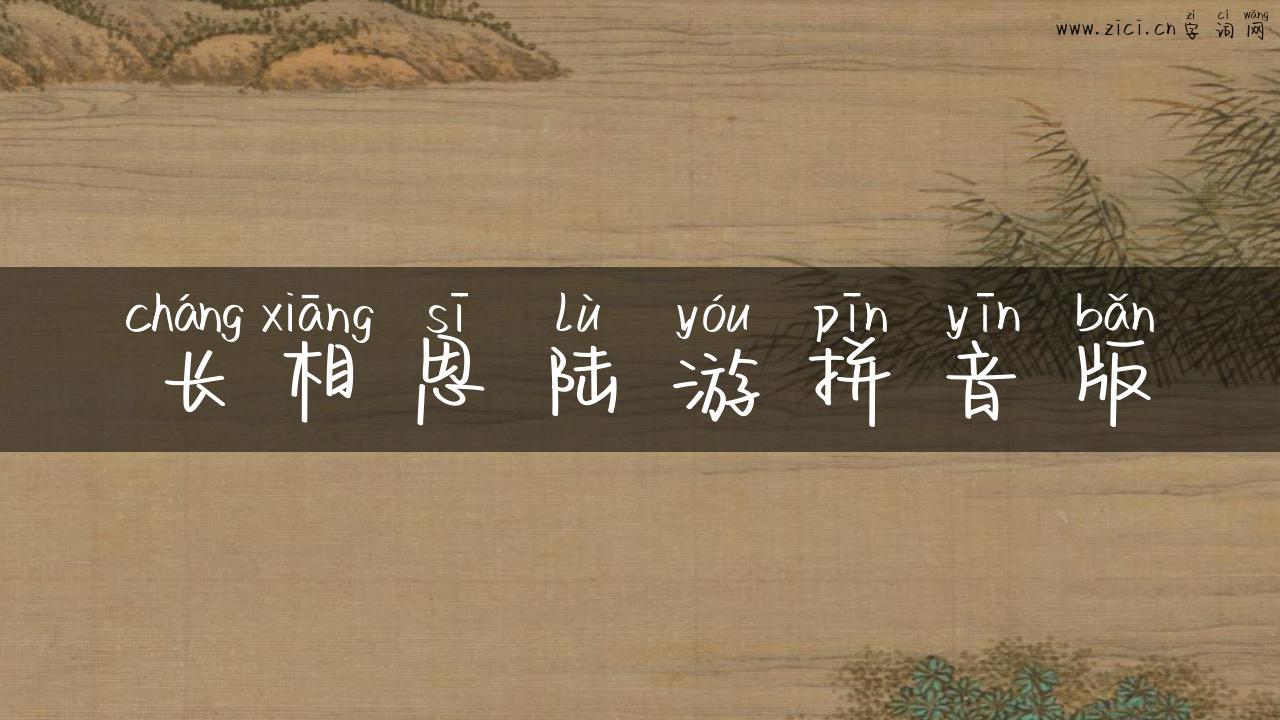 zì cí wǎng
www.zici.cn 字词网
cháng xiāng sī lù yóu pīn yīn bǎn
长相思陆游拼音版